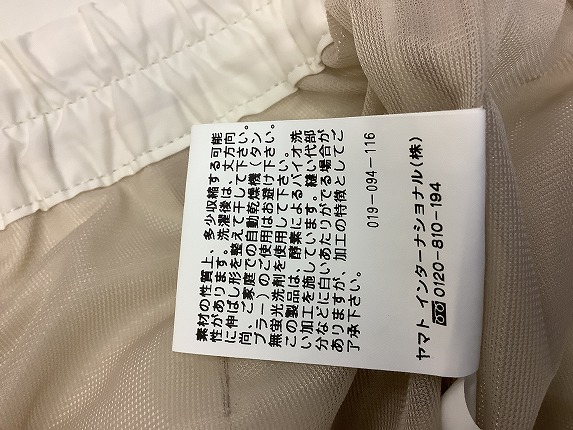 素材の性質上、多少収縮する可能
性があります。洗濯後は、丈方向
に伸ばし形を整えて干して下さい。
尚、ご家庭での自動乾燥機（タン
ブラー）のご使用はお避け下さい。
無蛍光洗剤を使用して下さい。
この製品は、酵素によるバイオ洗
い加工を施しています。縫い代部
分などに白いあたりがでる場合が
ありますが、加工の特徴としてご
了承下さい。
019-094-116
ヤマト インターナショナル(株)
0120-810-194